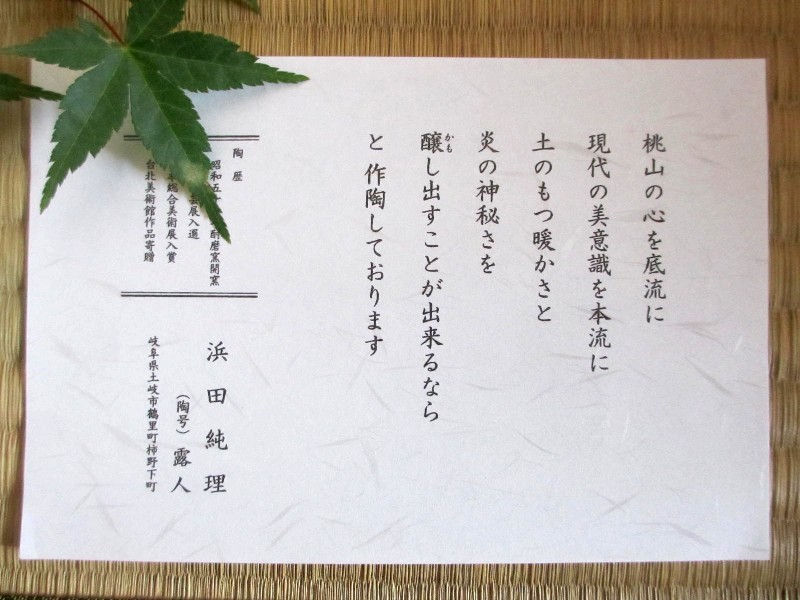 桃山の心を底流に
現代の美意識を本流に
土のもつ暖かさと
炎の神秘さを
醸し出すことが出来るなら
かも
と 作陶しております
陶歴
昭和五 耐磨窯開窯
芸展入選
総合美術展入賞
台北美術館作品寄贈
浜田純理
(陶号) 露人
岐阜県土岐市鶴里町柿野下町